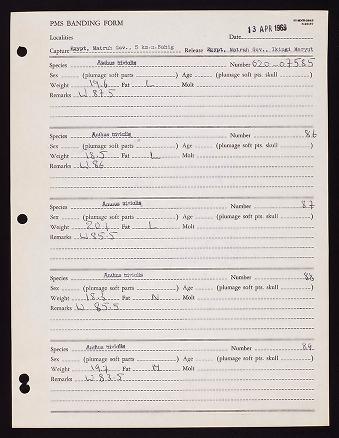 PMS BANDING FORM
Localities Date 13 APR 1969
Capture Egypt, Matruh Gov., 5 km.n.Bahig Release Egypt, Matruh Gov., Ikingi Maryut
Species Anthus trivialis Number 620-07585
Sex (plumage soft parts ) Age (plumage soft pts. skull )
Weight 19.6 Fat L Molt
Remarks W 87.5
Species Anthus trivialis Number 86
Sex (plumage soft parts ) Age (plumage soft pts. skull )
Weight 18.5 Fat L Molt
Remarks W 86
Species Anthus trivialis Number 87
Sex (plumage soft parts ) Age (plumage soft pts. skull )
Weight Fat L Molt
Remarks W 85.5
Species Anthus trivialis Number 88
Sex (plumage soft parts ) Age (plumage soft pts. skull )
Weight Fat N Molt
Remarks W 85.5
Species Anthus trivialis Number 89
Sex (plumage soft parts ) Age (plumage soft pts. skull )
Weight 19.7 Fat M Molt
Remarks W 83.5